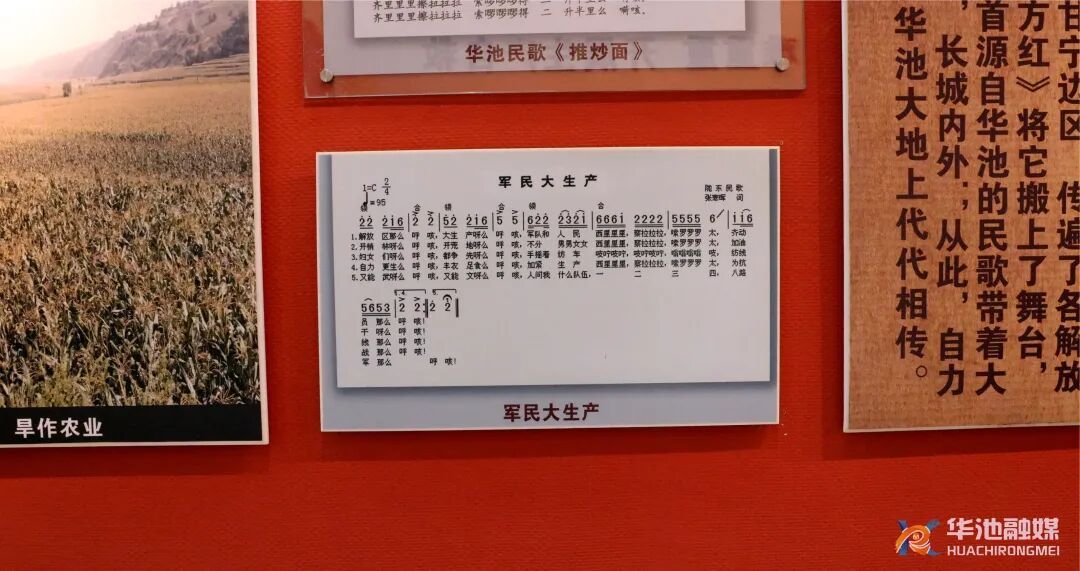 齐里里里擦拉拉拉 索啰啰啰得 二 升半里么 嗬咳。
华池民歌《推炒面》
军民大生产
1=C 2/4
♩=95
陇东民歌
张寒晖 词
领 合 领 合 领 合
1.解放 区那么 呼 咳，大生 产呀么 呼 咳，军队和 人 民 西里里里，察拉拉拉，嗦罗罗罗 太， 齐动
2.开梢 林呀么 呼 咳，开荒 地呀么 呼 咳，不分 男男女女 西里里里，察拉拉拉，嗦罗罗罗 太， 加油
3.妇女 们呀么 呼 咳，都争 先呀么 呼 咳，手摇着 纺 车 吱咛吱咛，吱咛吱咛，嗡嗡嗡嗡 吱， 纺线
4.自力 更生么 呼 咳，丰衣 足食么 呼 咳，加紧 生 产 西里里里，察拉拉拉，嗦罗罗罗 太， 为抗
5.又能 武呀么 呼 咳，又能 文呀么 呼 咳，人间我 什么队伍， 一 二 三 四， 八路
5653 2 2 2 2
员 那么 呼 咳！
干 呀么 呼 咳！
线 那么 呼 咳！
战 那么 呼 咳！
军 那么 呼 咳！
军民大生产
旱作农业
甘宁边区
传遍了各解放
方红》将它搬上了舞台，
首源自华池的民歌带着大
，长城内外；从此，自力
华池大地上代代相传。
华池融媒
HUACHIRONGMEI